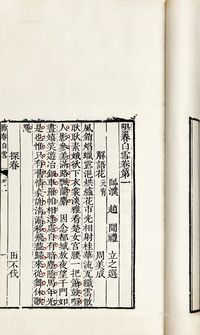 陽春白雪卷第一
趙 聞禮 立之選
解語花 元宵 周美成
風銷焰蠟露浥烘爐花市光相射桂華流瓦纖雲散
耿耿素娥欲下衣裳淡雅看楚女宮腰一把簫鼓喧
人影參差滿路飄香麝 因念都城放夜望千門如
晝嬉笑遊冶鈿車羅帕相逢處自有暗塵隨馬年光
是也惟只有舊情衰謝清漏移飛蓋歸來從舞休歌
罷
探春 田不伐